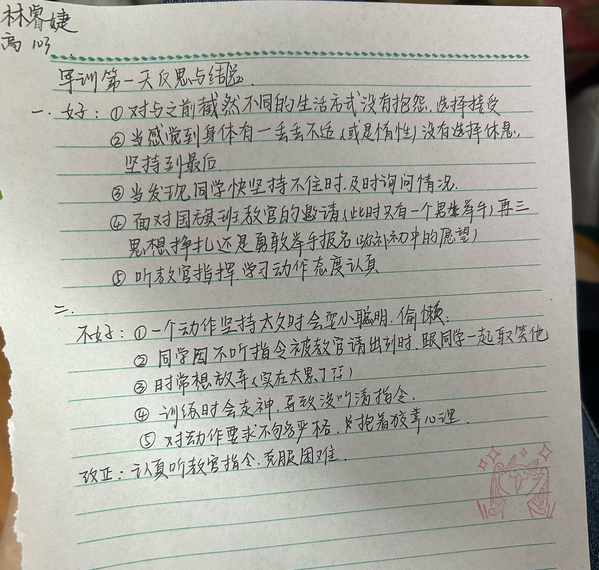 林睿婕
高 103
军训第一天反思与结总.
一. 好: ① 对与之前截然不同的生活方式没有抱怨, 选择接受
② 当感觉到身体有一丢丢不适 (或是惰性) 没有选择休息,
坚持到最后.
③ 当发现同学快坚持不住时, 及时询问情况.
④ 面对国旗班教官的邀请 (此时只有一个男生举手) 再三
思想挣扎还是勇敢举手报名 (弥补初中的愿望)
⑤ 听教官指挥, 学习动作态度认真
二.
不好: ① 一个动作坚持太久时会耍小聪明, 偷懒.
② 同学因不听指令被教官请出列时, 跟同学一起取笑他
③ 时常想放弃 (实在太累了)
④ 训练时会走神, 导致没听清指令.
⑤ 对动作要求不够严格, 抱着侥幸心理.
改正: 认真听教官指令, 克服困难.